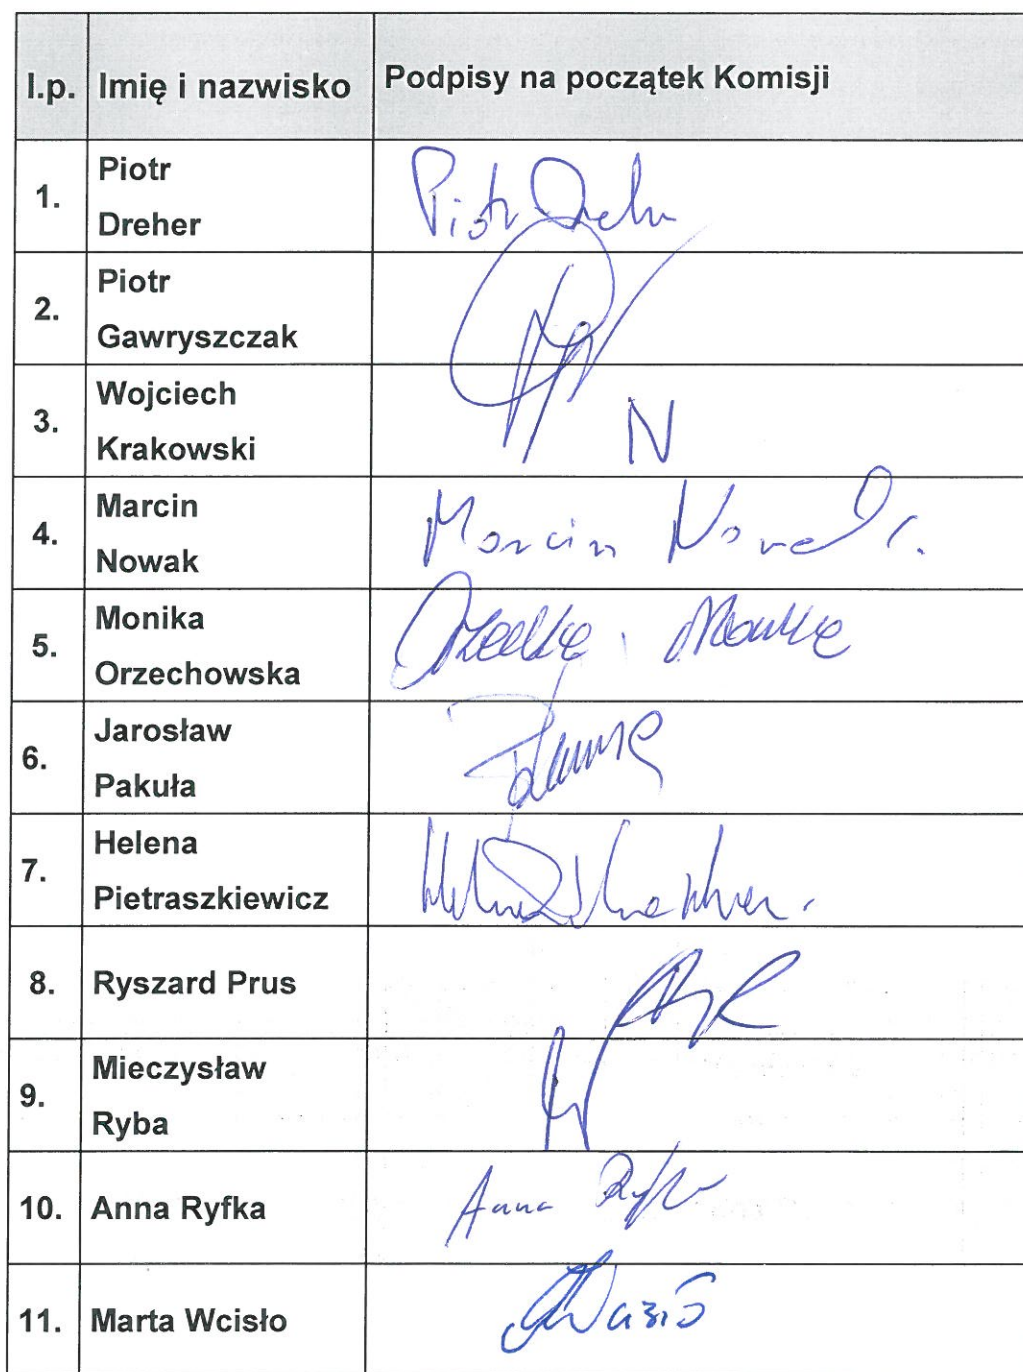 l.p. Imię i nazwisko Podpisy na początek Komisji
1. Piotr Dreher Piotr
2. Piotr Gawryszczak
3. Wojciech Krakowski N
4. Marcin Nowak Marcin Nowak
5. Monika Orzechowska
6. Jarosław Pakuła
7. Helena Pietraszkiewicz
8. Ryszard Prus
9. Mieczysław Ryba
10. Anna Ryfka Anna
11. Marta Wcisło